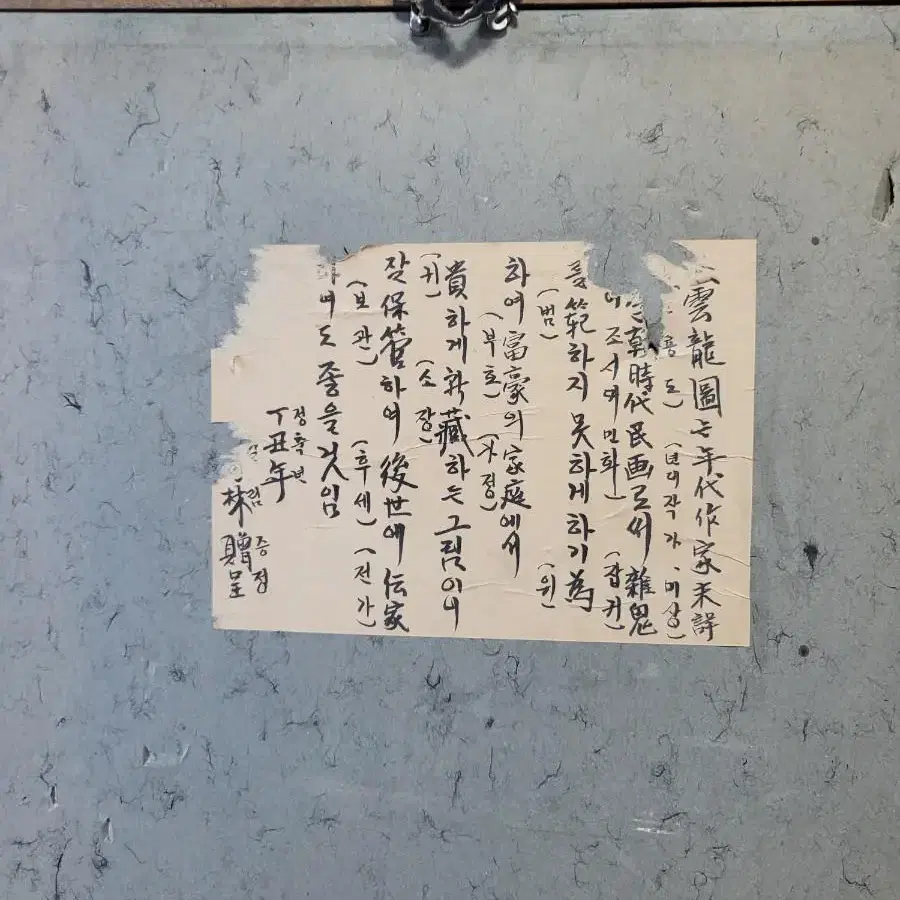 雲龍圖는年代作家未詳
룡도) (년대작가.미상)
朝時代民画로써雜鬼
조시대민화) (잡귀)
를範하지못하게하기為
(범) (위)
하여富豪의家庭에서
(부호) (가정)
貴하게所藏하는그림이니
(귀) (소장)
잘保管하여後世에伝家
(보관) (후세) (전가)
여도좋을것임
정축년
丁丑年
림
林贈呈
증정